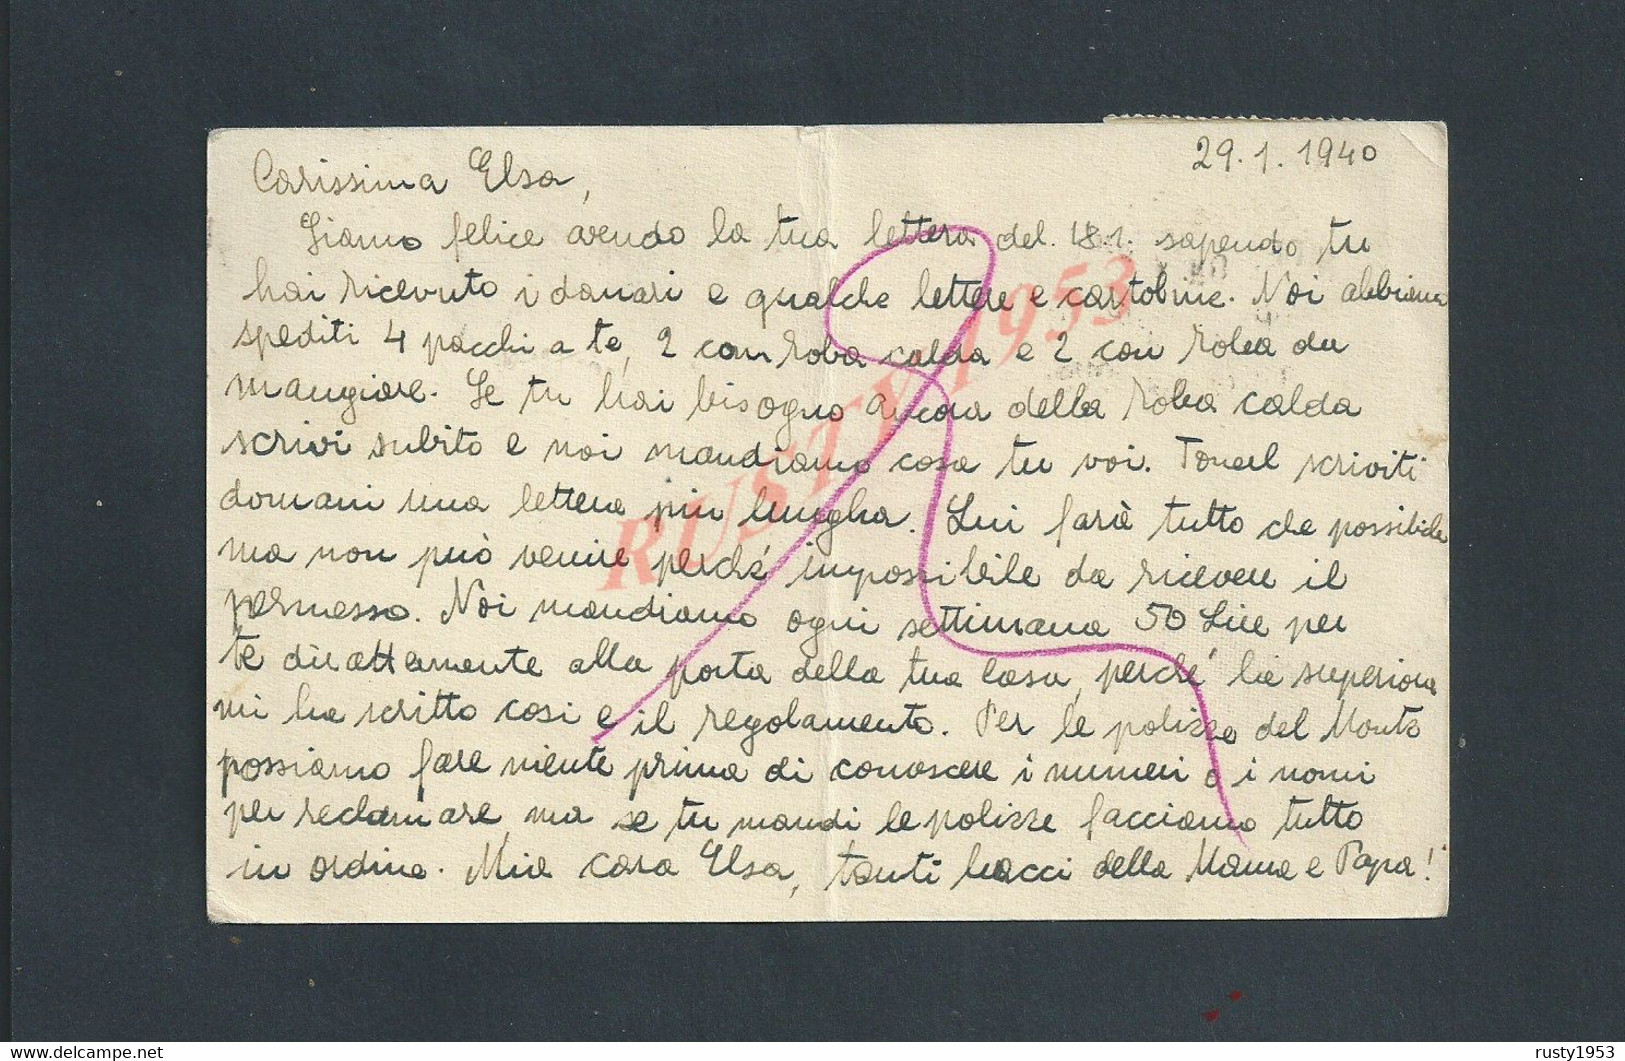 29.1.1940
Carissima Elsa,
Siamo felice avendo la tua lettera del. 18.1. sapendo tu
hai ricevuto i danari e qualche lettere e cartoline. Noi abbiamo
spediti 4 pacchi a te, 2 con roba calda e 2 con roba da
mangiare. Se tu hai bisogno ancora della roba calda
scrivi subito e noi mandiamo cosa tu voi. scriviti
domani una lettera più lungha. Lui farà tutto che possibile
ma non può venire perché impossibile da ricevere il
permesso. Noi mandiamo ogni settimana 50 Lire per
te direttamente alla porta della tua casa, perché la superiora
mi ha scritto cosi e il regolamento. Per le polizze del Monte
possiamo fare niente prima di conoscere i numeri o i nomi
per reclamare, ma se tu mandi le polizze facciamo tutto
in ordine. Mia cara Elsa, tanti bacci della Mama e Papa!
RUSTY 1953
rusty1953